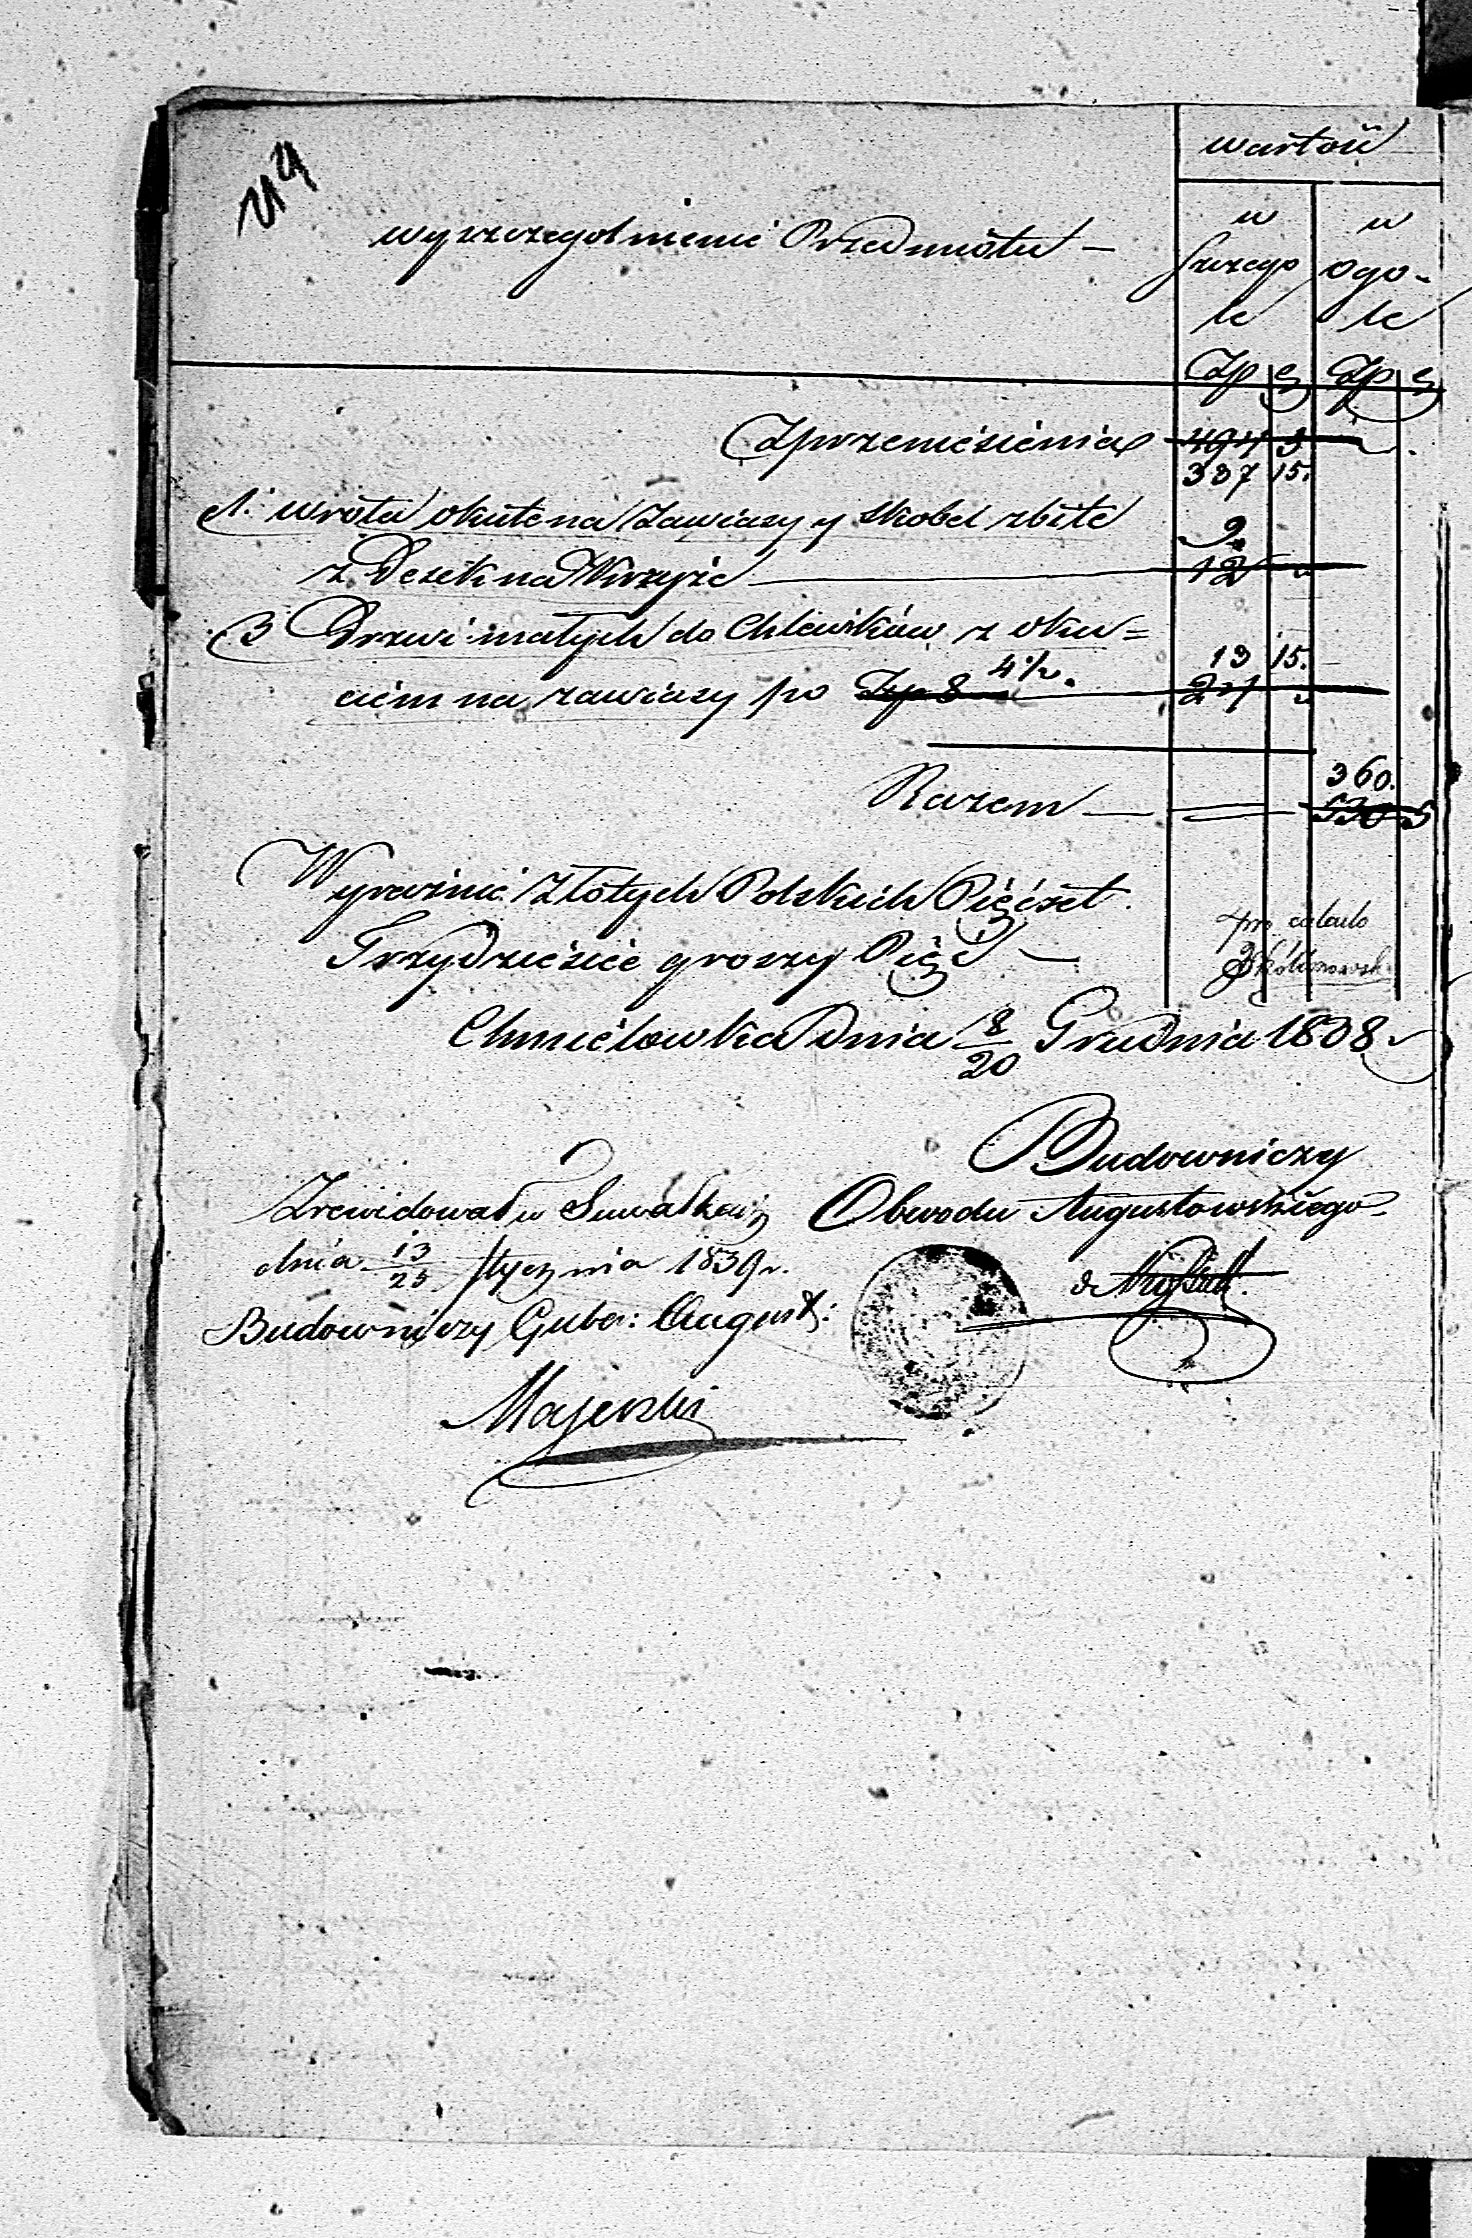 wartość
wyszczegolnienie Przedmiotu —
w szczegole
w ogole
Zp g Zp g
Zprzeniesienia 494 5
337 15.
1. wrota okute na zawiasy y skobel zbite
9.
z Desek na Krzyż — 12 „
3 Drzwi małych do Chlewików z oku=
4½. 13 15.
ciem na zawiasy po Zp 8 — 24 „
360.
Razem — 530 5
Wyraźnie Złotych Polskich Pięćset
Trzydzieście groszy Pięć —
pro calculo
Chmielowka Dnia 8/20 Grudnia 1838 r
Budowniczy
Obwodu Augustowskiego
Zrewidował w Suwałkach
dnia 13/25 Stycznia 1839 r.
Budowniczy Guber: August:
Majewski